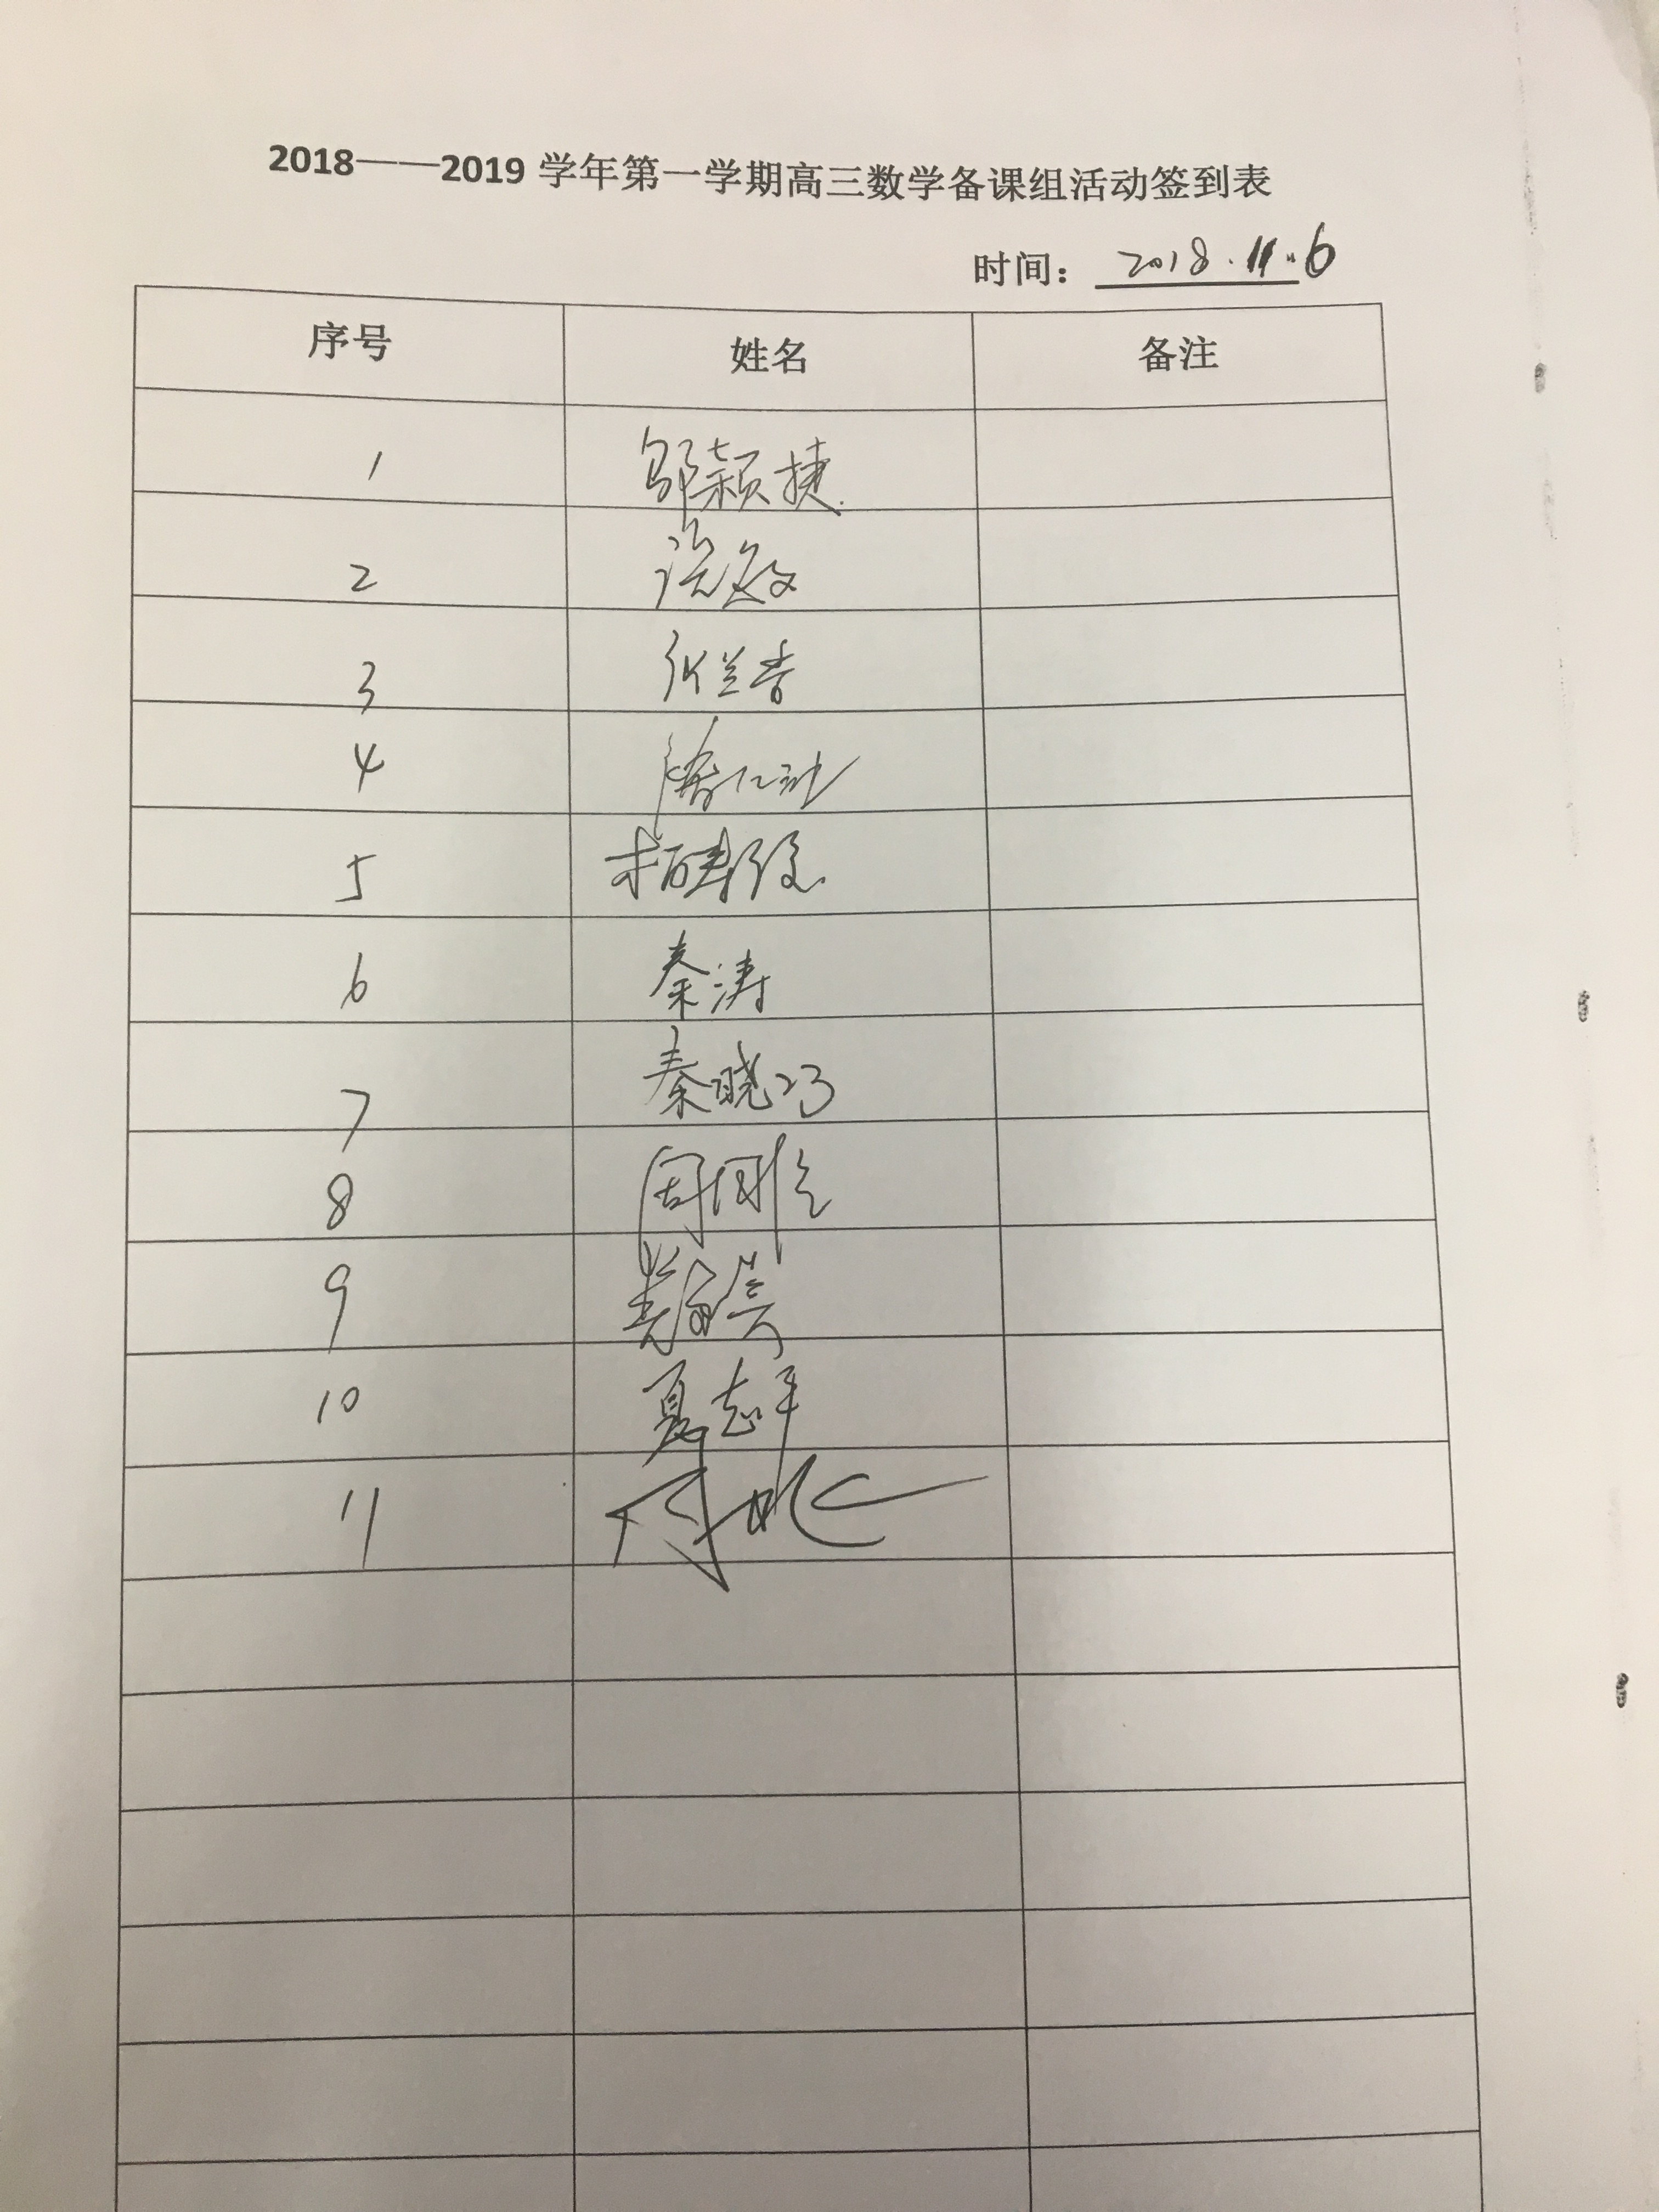 2018——2019 学年第一学期高三数学备课组活动签到表
时间： 2018.11.6
序号 姓名 备注
1 邹颖捷
2
3 张兰香
4
5
6 秦涛
7 秦晓
8 周
9
10 夏志平
11